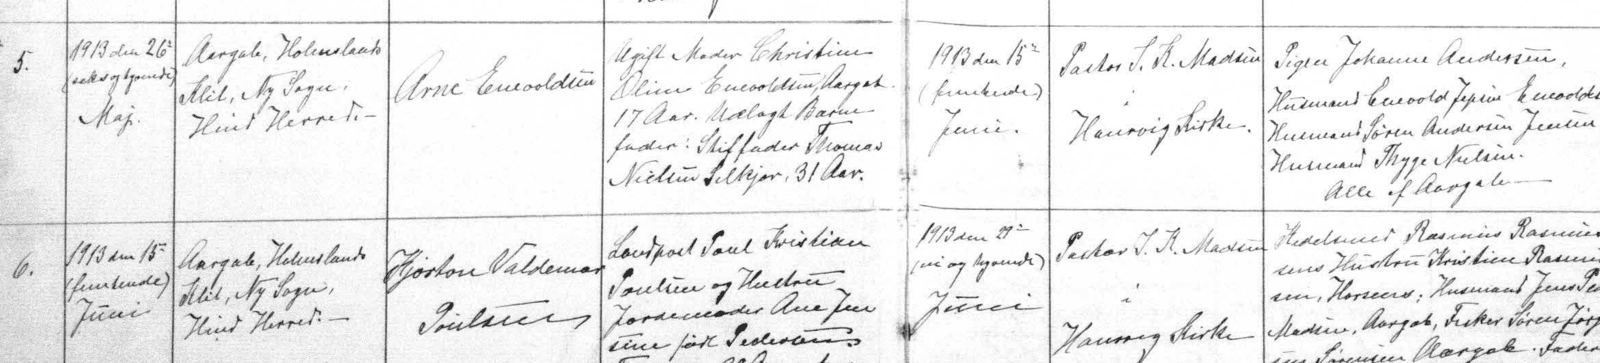 5.
1913 den 26de
(seks og tyvende)
Maj.
Aargab, Holmslands
Klit, Ny Sogn,
Hind Herred.
Arne Enevoldsen
Ugift Moder Christine
Oline Enevoldsen, Aargab
17 Aar. Udlagt Barne
fader: Stiffader Thomas
Nielsen Selkjær, 31 Aar.
1913 den 15de
(femtende)
Juni.
Pastor S. K. Madsen
i
Haurvig Kirke.
Pigen Johanne Andersen,
Husmand Enevold Jepsen Enevolds
Husmand Søren Andersen Jensen
Husmand Thyge Nielsen.
Alle af Aargab
6.
1913 den 15de
(femtende)
Juni
Aargab, Holmslands
Klit, Ny Sogn,
Hind Herred.
Hjorton Valdemar
Poulsen
Landpost Poul Kristian
Poulsen og Hustru
Jordemoder Ane Jen
sine født Pedersen
1913 den 29de
(ni og tyvende)
Juni
Pastor S. K. Madsen
i
Haurvig Kirke
Rasmus Rasmus
sens Hustru Kristine Rasmus
sen, Horsens; Husmand Jens
Madsen, Aargab, Fisker Søren
Sørensen Aargab.